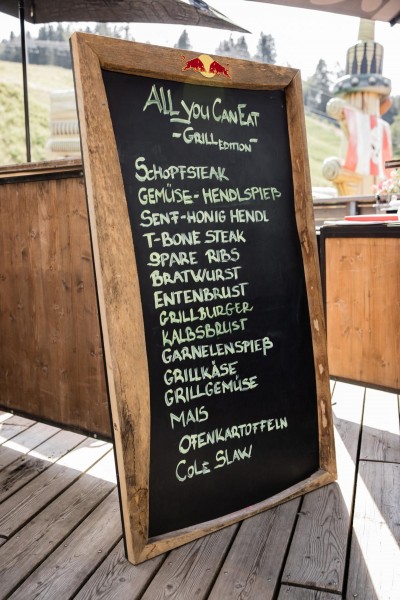 ALL YOU CAN EAT
-GRILL EDITION-
SCHOPFSTEAK
GEMÜSE-HENDLSPIEß
SENF-HONIG HENDL
T-BONE STEAK
SPARE RIBS
BRATWURST
ENTENBRUST
GRILLBURGER
KALBSBRUST
GARNELENSPIEß
GRILLKÄSE
GRILLGEMÜSE
MAIS
OFENKARTOFFELN
COLE SLAW